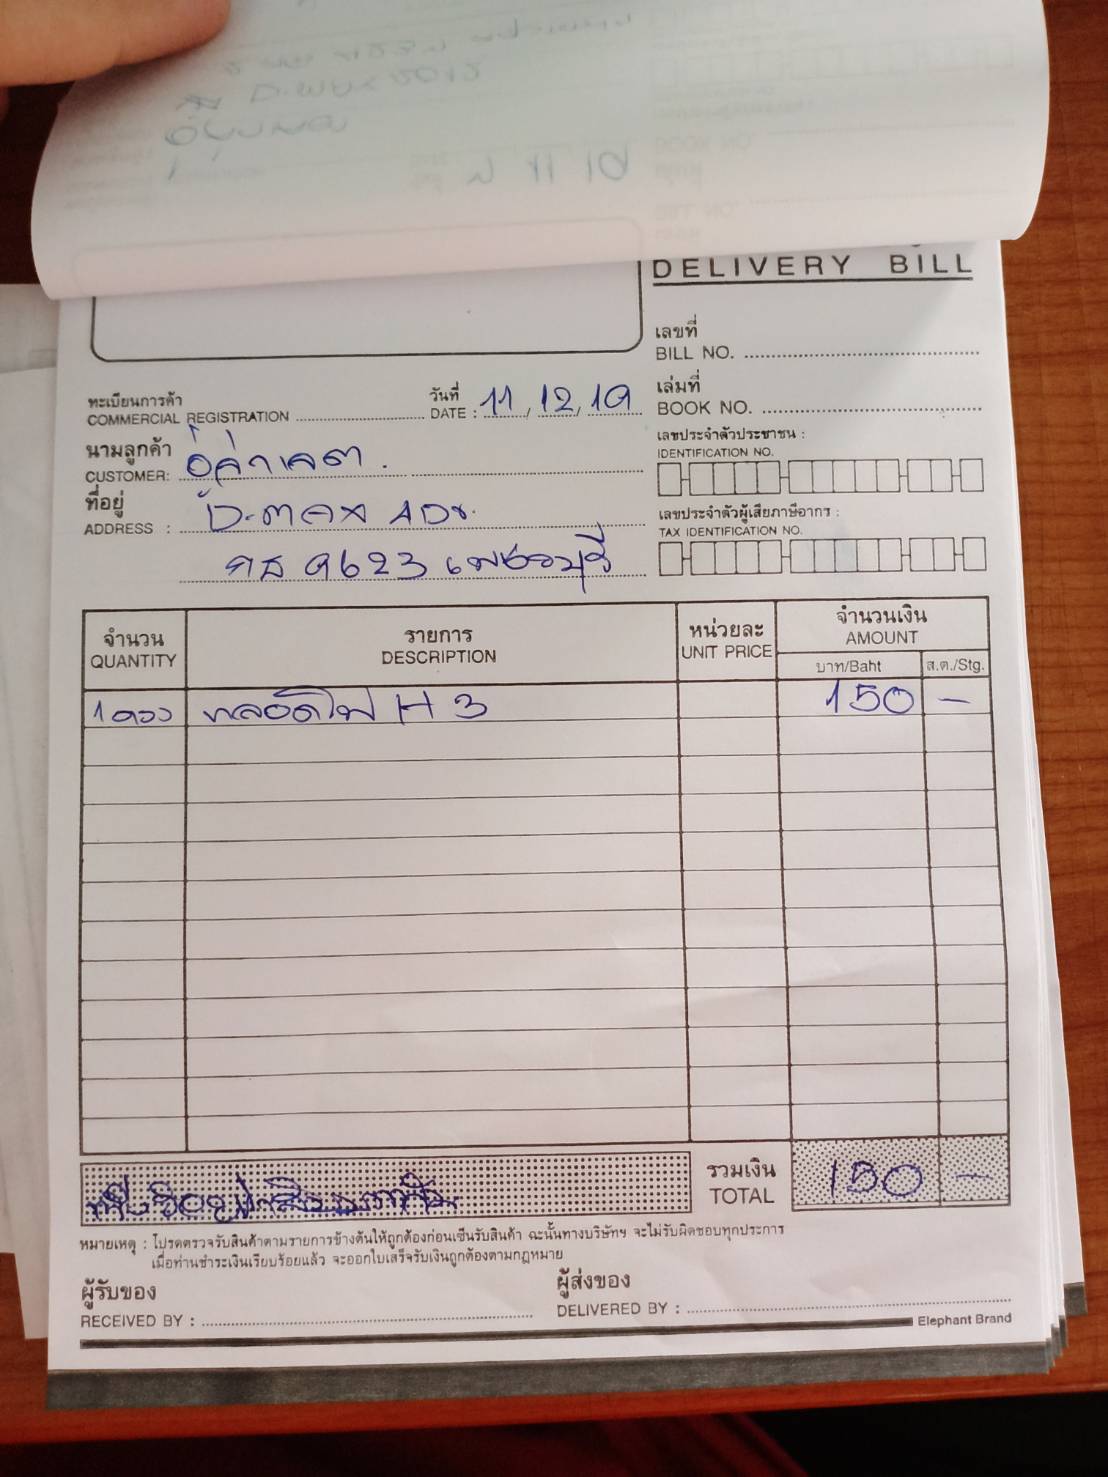 DELIVERY BILL
เลขที่
BILL NO.
ทะเบียนการค้า
COMMERCIAL REGISTRATION
วันที่
DATE : 11, 12, 19
เล่มที่
BOOK NO.
นามลูกค้า
CUSTOMER:
เลขประจำตัวประชาชน :
IDENTIFICATION NO.
ที่อยู่
ADDRESS :
เลขประจำตัวผู้เสียภาษีอากร :
TAX IDENTIFICATION NO.
9623 เพชรบุรี
จำนวน
QUANTITY
รายการ
DESCRIPTION
หน่วยละ
UNIT PRICE
จำนวนเงิน
AMOUNT
บาท/Baht
ส.ต./Stg.
1 ดวง หลอดไฟ H3 150 -
รวมเงิน
TOTAL
150 -
หมายเหตุ : โปรดตรวจรับสินค้าตามรายการข้างต้นให้ถูกต้องก่อนเซ็นรับสินค้า ฉะนั้นทางบริษัทฯ จะไม่รับผิดชอบทุกประการ
เมื่อท่านชำระเงินเรียบร้อยแล้ว จะออกใบเสร็จรับเงินถูกต้องตามกฎหมาย
ผู้รับของ
RECEIVED BY :
ผู้ส่งของ
DELIVERED BY :
Elephant Brand